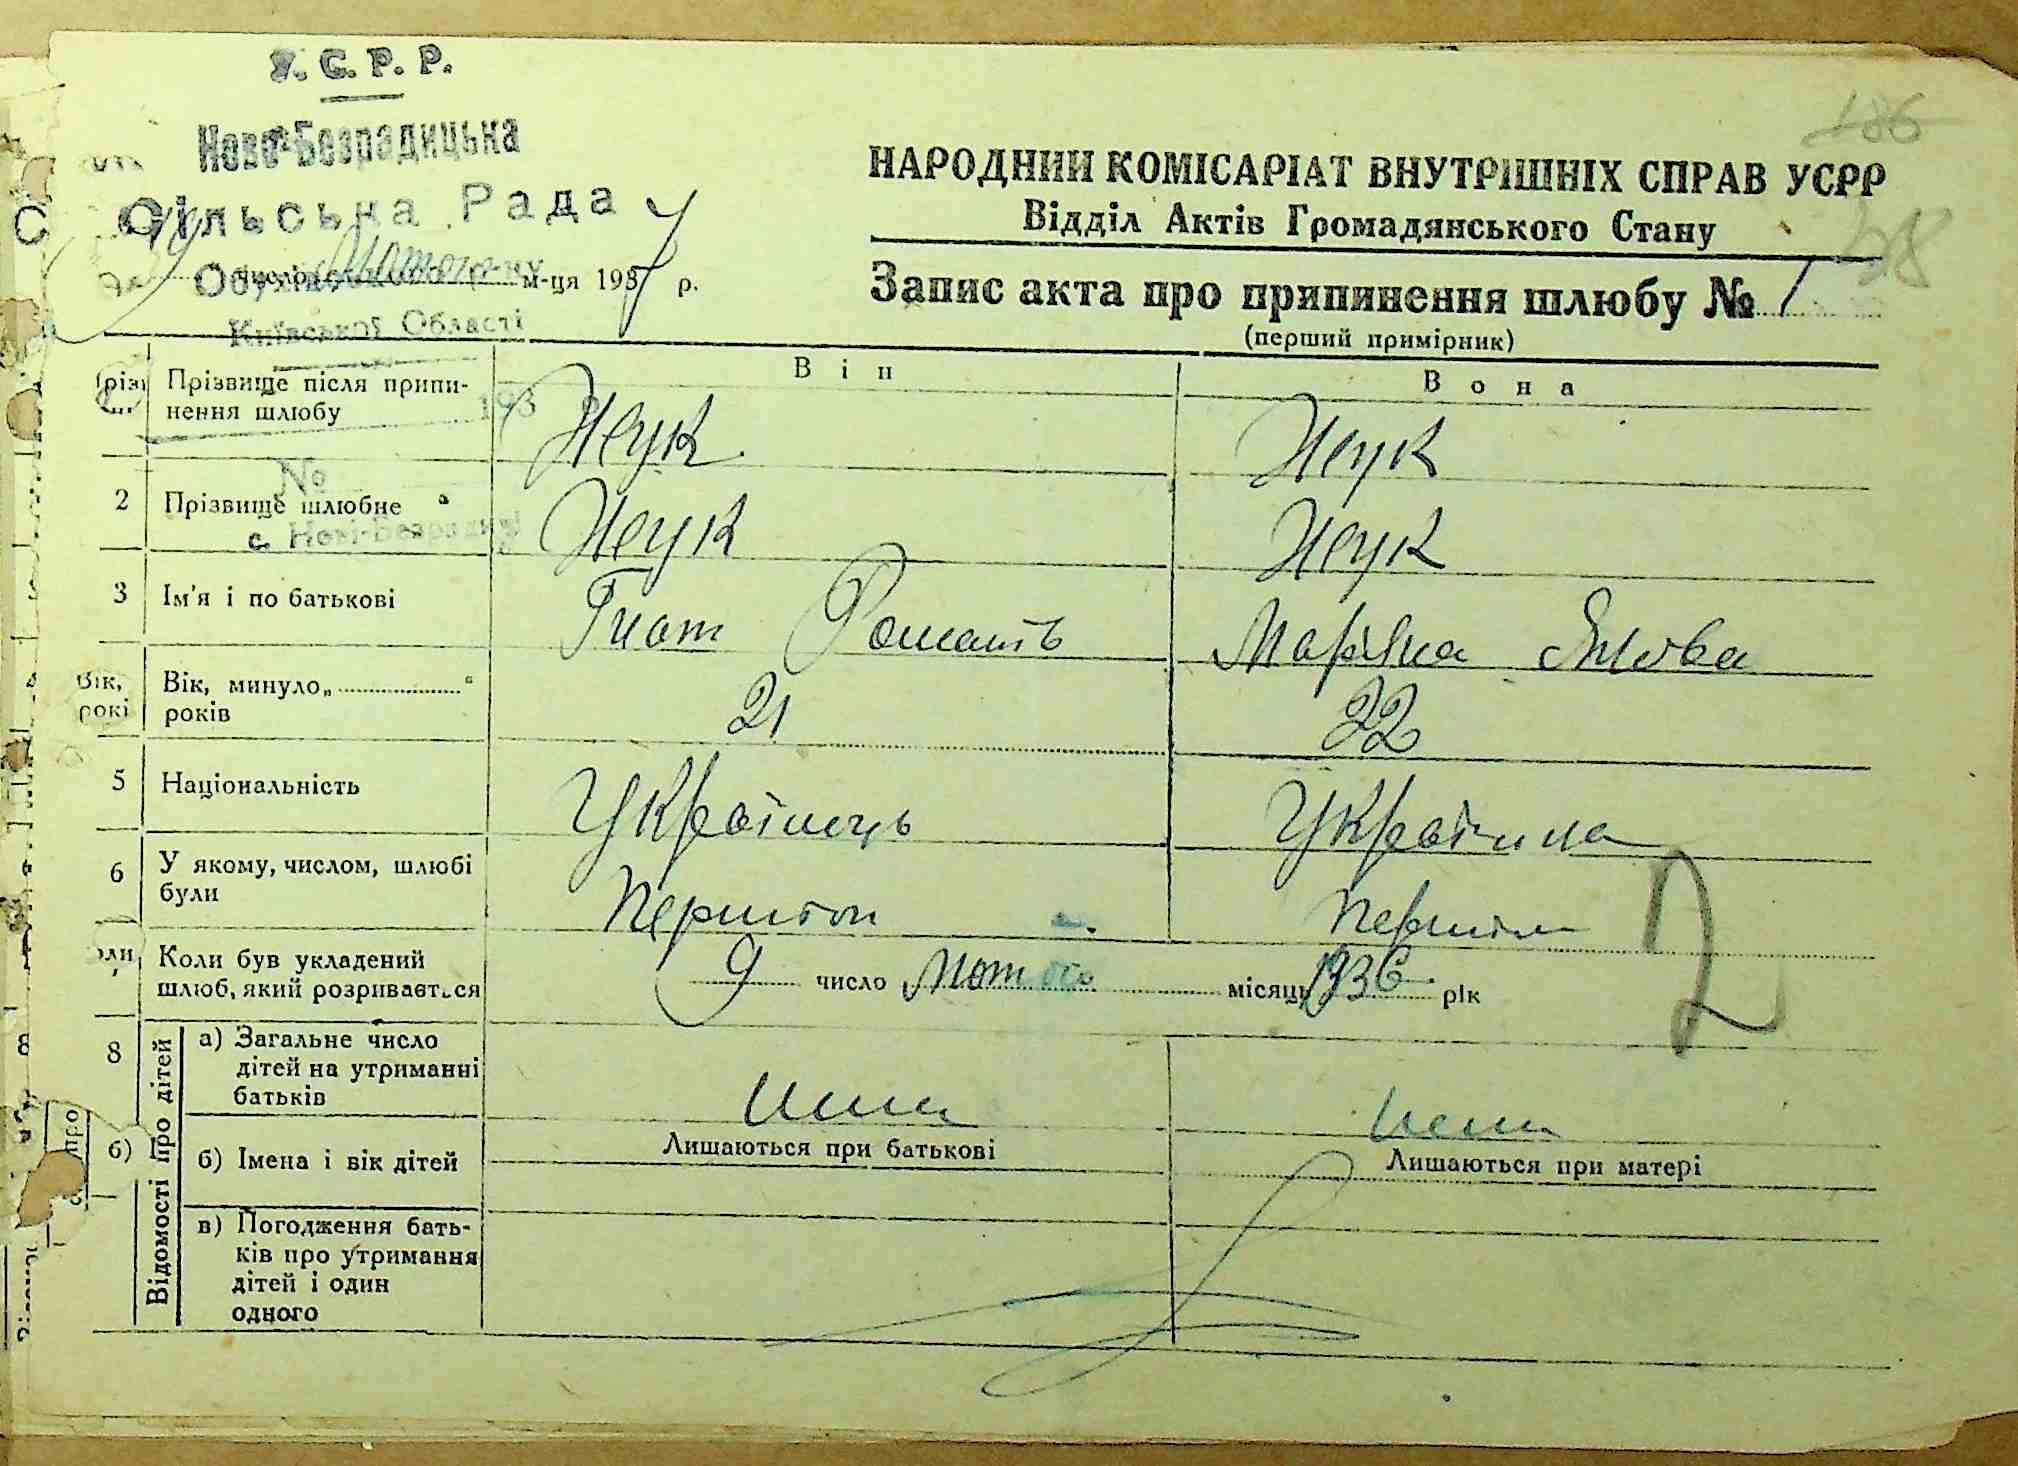 У. С. Р. Р.
Ново-Безрадицька
Сільська Рада
Київської Області
193
№
с. Нові-Безрадичі
186
38
НАРОДНИЙ КОМІСАРІАТ ВНУТРІШНІХ СПРАВ УСРР
Відділ Актів Громадянського Стану
число Лютого м-ця 1937 р.
Запис акта про припинення шлюбу № 1
(перший примірник)
Він
Вона
Прізвище після припи-
нення шлюбу
Неук
Неук
2 Прізвище шлюбне
Неук
Неук
3 Ім'я і по батькові
Гнат Романів
Маріяна
Вік, минуло „ “
років
21
22
5 Національність
Українець
Українка
6 У якому, числом, шлюбі
були
Першом
Першом
Коли був укладений
шлюб, який розривається
9 число Лютого місяць 1936 рік
8 Відомості про дітей
а) Загальне число
дітей на утриманні
батьків
нема
нема
б) Імена і вік дітей
Лишаються при батькові
Лишаються при матері
в) Погодження бать-
ків про утримання
дітей і один
одного
2